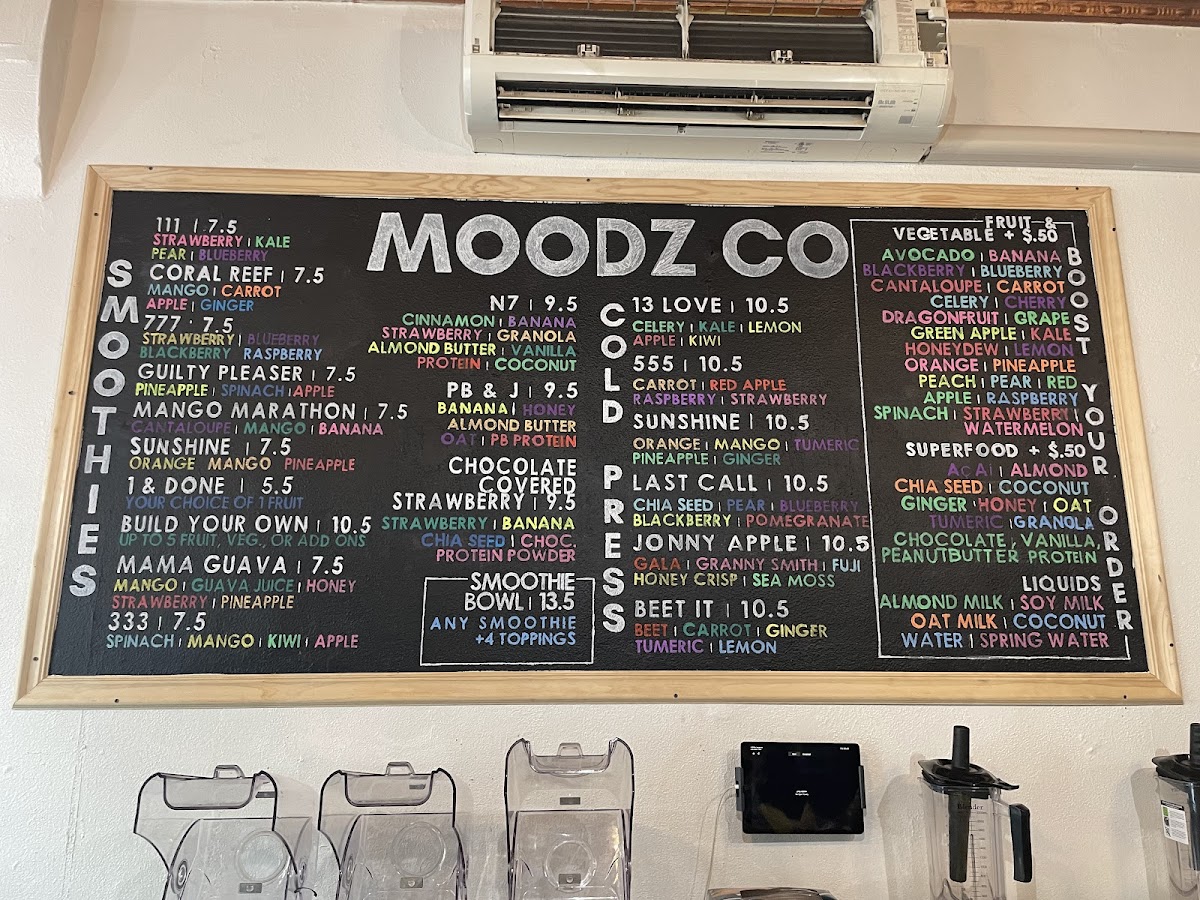 MOODZ CO
SMOOTHIES
111 | 7.5
STRAWBERRY | KALE
PEAR | BLUEBERRY
CORAL REEF | 7.5
MANGO | CARROT
APPLE | GINGER
777 | 7.5
STRAWBERRY | BLUEBERRY
BLACKBERRY RASPBERRY
GUILTY PLEASER | 7.5
PINEAPPLE | SPINACH | APPLE
MANGO MARATHON | 7.5
CANTALOUPE | MANGO | BANANA
SUNSHINE | 7.5
ORANGE MANGO PINEAPPLE
1 & DONE | 5.5
YOUR CHOICE OF 1 FRUIT
BUILD YOUR OWN | 10.5
UP TO 5 FRUIT, VEG., OR ADD ONS
MAMA GUAVA | 7.5
MANGO | GUAVA JUICE | HONEY
STRAWBERRY | PINEAPPLE
333 | 7.5
SPINACH | MANGO | KIWI | APPLE
N7 | 9.5
CINNAMON | BANANA
STRAWBERRY | GRANOLA
ALMOND BUTTER | VANILLA
PROTEIN | COCONUT
PB & J | 9.5
BANANA | HONEY
ALMOND BUTTER
OAT | PB PROTEIN
CHOCOLATE
COVERED
STRAWBERRY | 9.5
STRAWBERRY | BANANA
CHIA SEED | CHOC.
PROTEIN POWDER
SMOOTHIE
BOWL | 13.5
ANY SMOOTHIE
+4 TOPPINGS
COLD PRESS
13 LOVE | 10.5
CELERY | KALE | LEMON
APPLE | KIWI
555 | 10.5
CARROT | RED APPLE
RASPBERRY | STRAWBERRY
SUNSHINE | 10.5
ORANGE | MANGO | TUMERIC
PINEAPPLE | GINGER
LAST CALL | 10.5
CHIA SEED | PEAR | BLUEBERRY
BLACKBERRY | POMEGRANATE
JONNY APPLE | 10.5
GALA | GRANNY SMITH | FUJI
HONEY CRISP | SEA MOSS
BEET IT | 10.5
BEET | CARROT | GINGER
TUMERIC | LEMON
BOOST YOUR ORDER
FRUIT &
VEGETABLE + $.50
AVOCADO | BANANA
BLACKBERRY | BLUEBERRY
CANTALOUPE | CARROT
CELERY | CHERRY
DRAGONFRUIT | GRAPE
GREEN APPLE | KALE
HONEYDEW | LEMON
ORANGE | PINEAPPLE
PEACH | PEAR | RED
APPLE | RASPBERRY
SPINACH | STRAWBERRY |
WATERMELON
SUPERFOOD + $.50
AÇAI | ALMOND
CHIA SEED | COCONUT
GINGER | HONEY | OAT
TUMERIC | GRANOLA
CHOCOLATE, VANILLA,
PEANUTBUTTER PROTEIN
LIQUIDS
ALMOND MILK | SOY MILK
OAT MILK | COCONUT
WATER | SPRING WATER